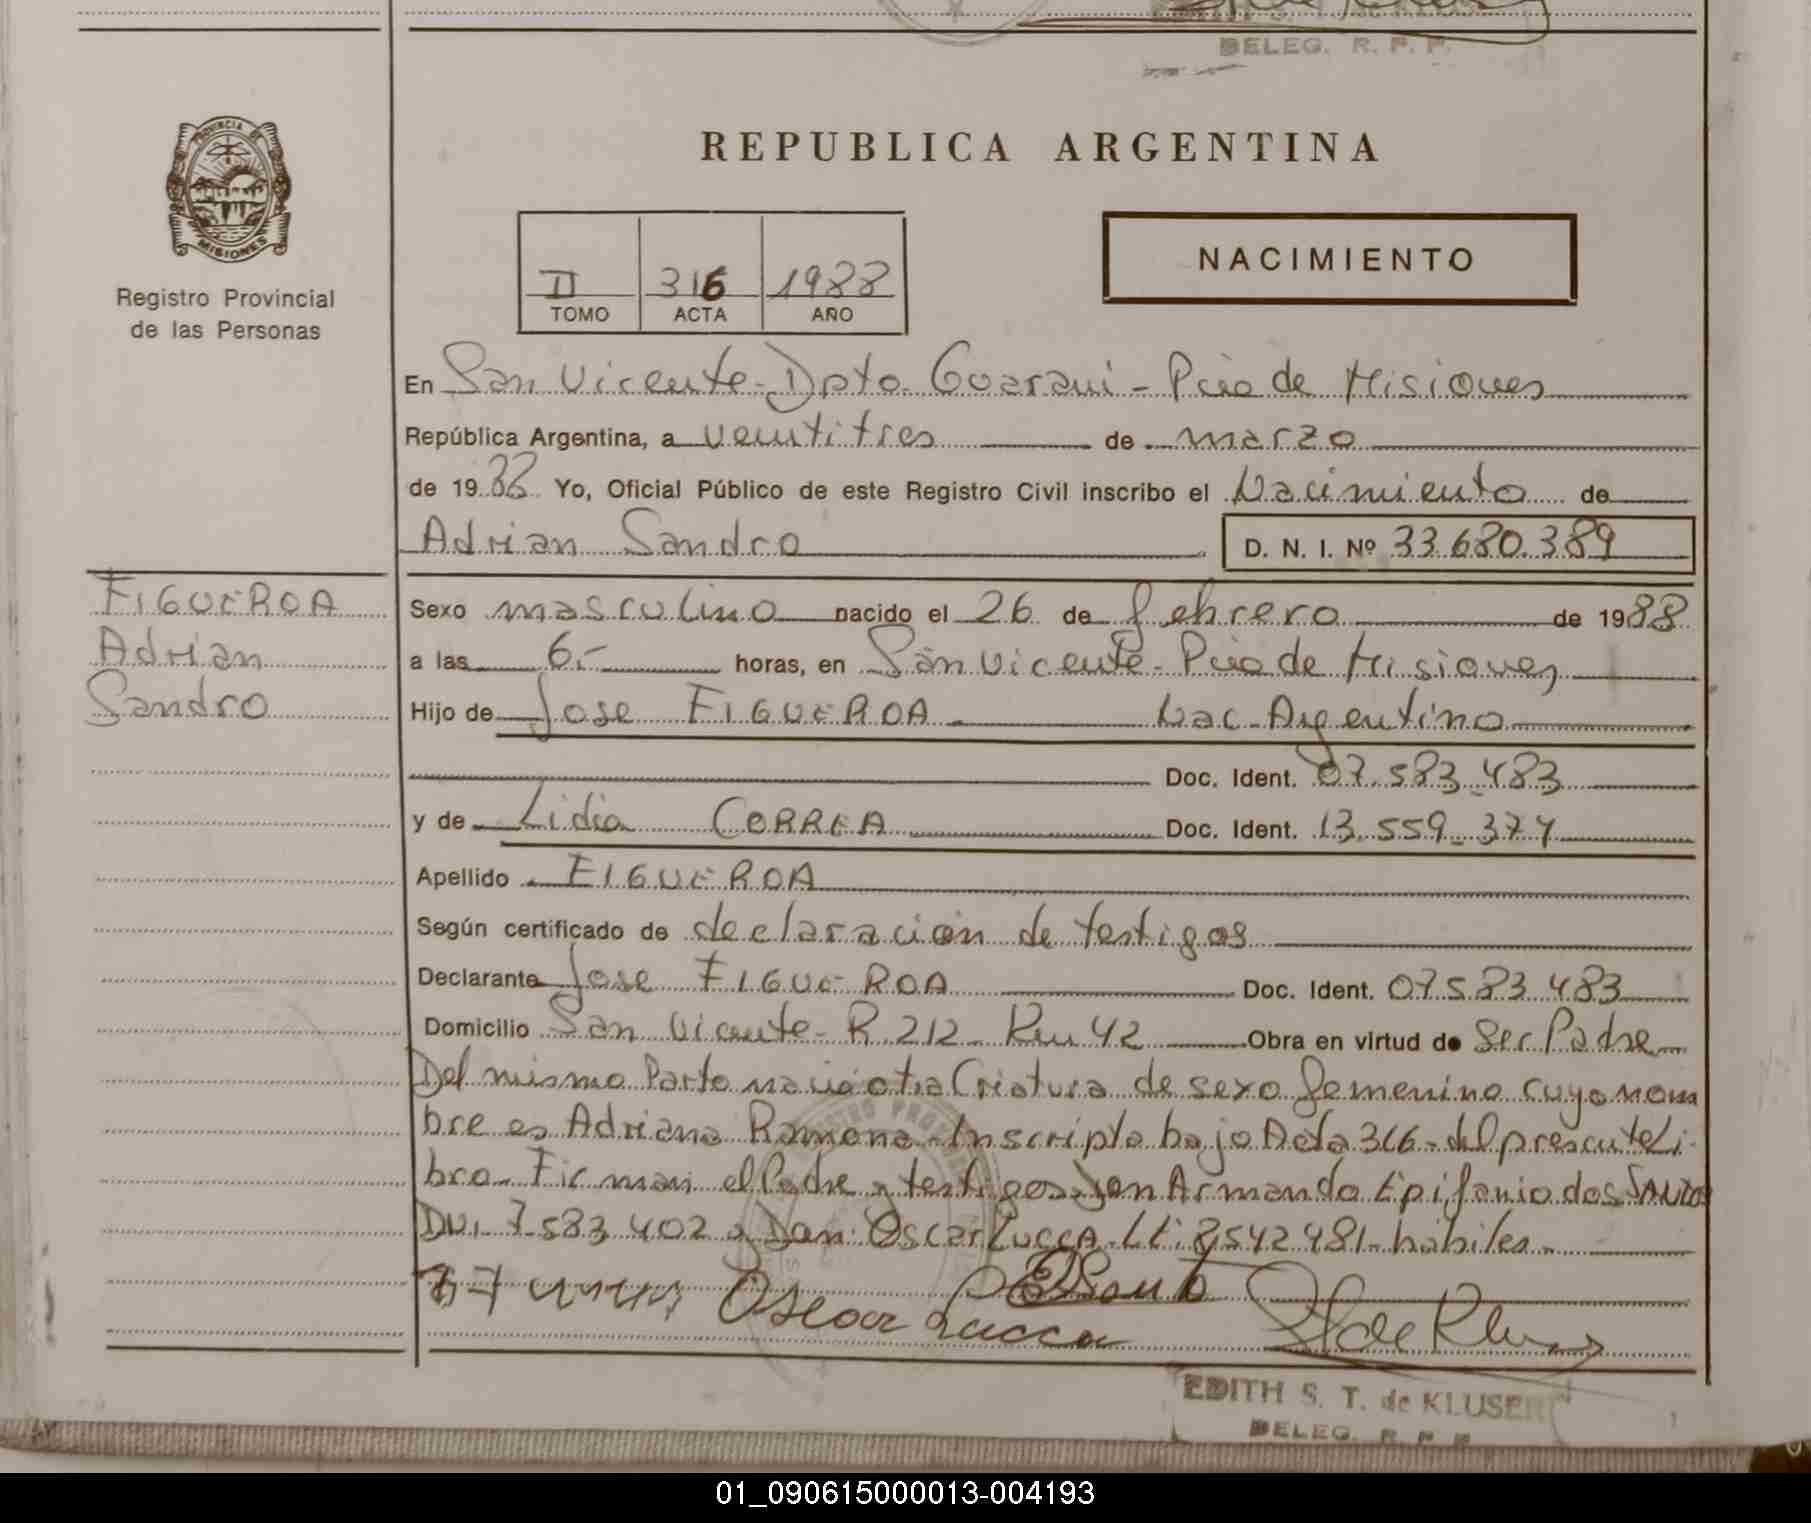 BELEG. R. P. P.
PROVINCIA DE
MISIONES
Registro Provincial
de las Personas
REPUBLICA ARGENTINA
II 316 1988
TOMO ACTA AÑO
NACIMIENTO
En San Vicente - Dpto. Guarani - Pcia de Misiones
República Argentina, a veintitres de marzo
de 1988 Yo, Oficial Público de este Registro Civil inscribo el Nacimiento de
Adrian Sandro D. N. I. Nº 33.680.389
FIGUEROA
Adrian
Sandro
Sexo masculino nacido el 26 de febrero de 1988
a las 6.- horas, en San Vicente - Pcia de Misiones
Hijo de Jose FIGUEROA Nac. Argentino
Doc. Ident. 07.583.483
y de Lidia CORREA Doc. Ident. 13.559.374
Apellido FIGUEROA
Según certificado de declaración de testigos
Declarante Jose FIGUEROA Doc. Ident. 07583 483
Domicilio San Vicente - R. 212 - Km 42 Obra en virtud de Ser Padre
Del mismo Parto nació otra Criatura de sexo femenino cuyo nom
bre es Adriana Ramona - Inscripta bajo Acta 316 - del presente Li-
bro. Firman el Padre y testigos. Armando Epifanio dos SANTOS
DNI. 7.583.402 y Don Oscar LUCCA - LE: 8,542 481 - hábiles -
Oscar Lucca
EDITH S. T. de KLUSER
BELEG. R. P. P.
01_090615000013-004193